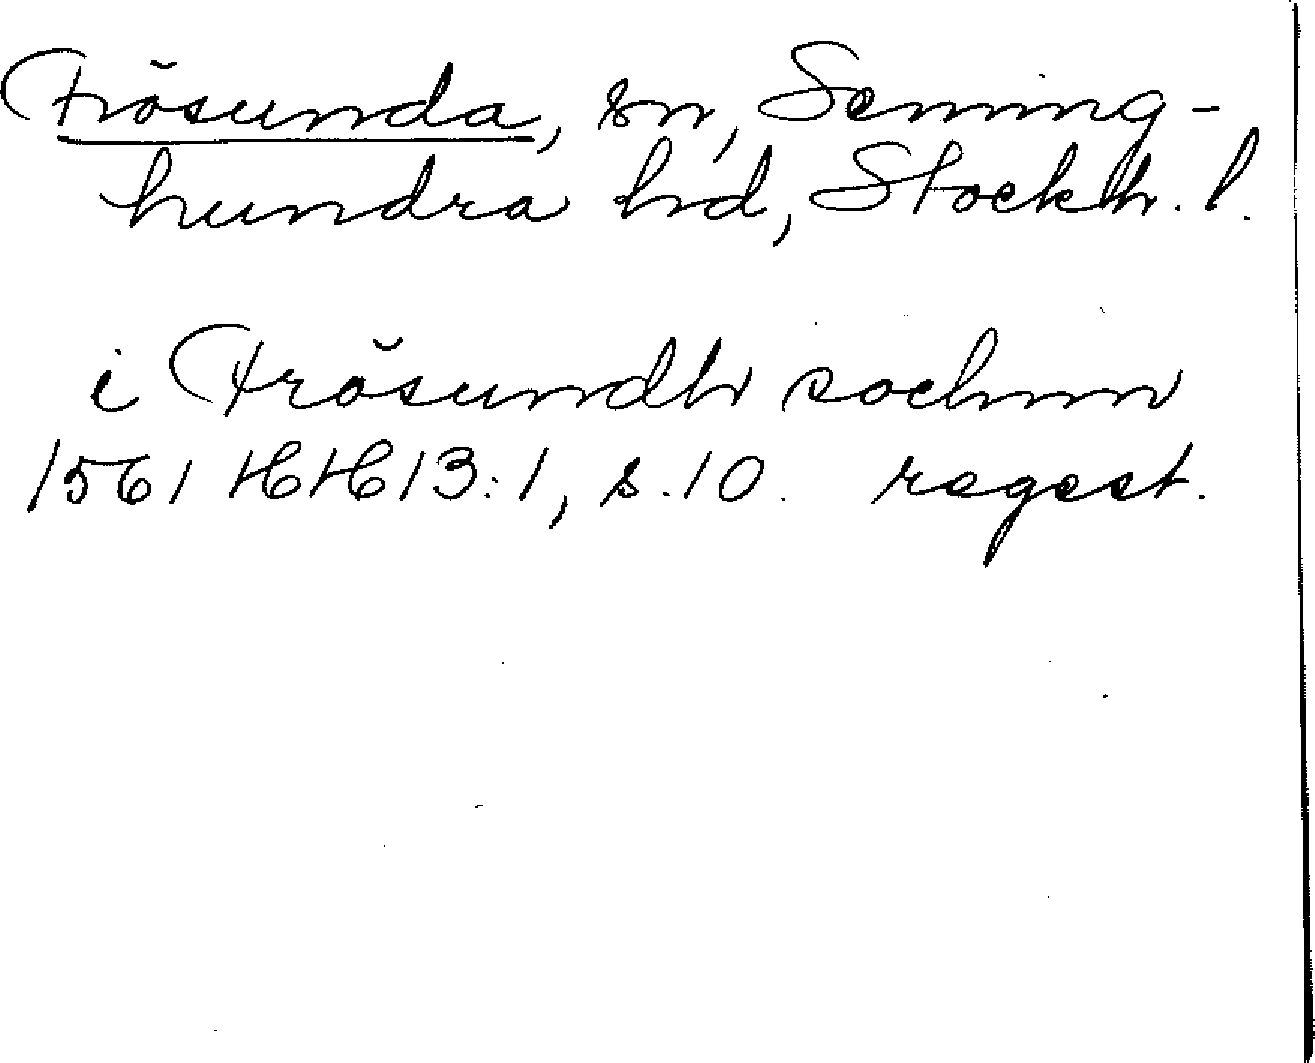 Frösunda, sn, Seming-
hundra hd, Stockh. l.
i Frösundh sochnn
1561 HH 13:1, s. 10. regest.